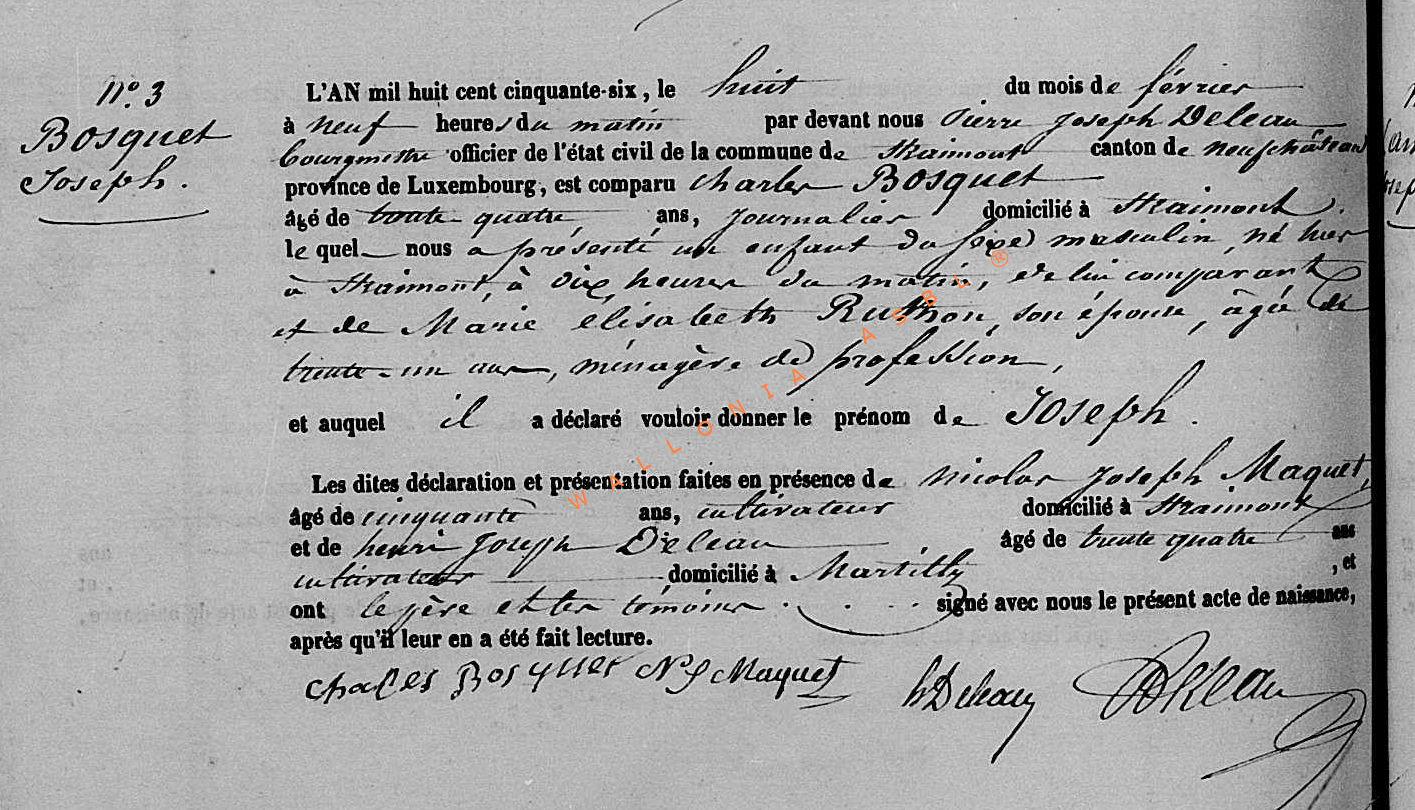 N° 3
Bosquet
Joseph.
L'AN mil huit cent cinquante-six, le huit du mois de février
à neuf heures du matin par devant nous Pierre Joseph Deleau
bourgmestre officier de l'état civil de la commune de Straimont canton de neufchâteau
province de Luxembourg, est comparu Charles Bosquet
âgé de trente quatre ans, journalier domicilié à Straimont.
le quel nous a présenté un enfant du sexe masculin, né hier
à Straimont, à dix heures du matin, de lui comparant
et de Marie elisabeth Ruthon, son épouse, âgée de
trente-un ans, ménagère de profession,
et auquel il a déclaré vouloir donner le prénom de Joseph.
Les dites déclaration et présentation faites en présence de Nicolas Joseph Maquet,
âgé de cinquante ans, cultivateur domicilié à Straimont
et de henri Joseph Deleau âgé de trente quatre ans
cultivateur domicilié à Martilly, et
ont le père et les témoins signé avec nous le présent acte de naissance,
après qu'il leur en a été fait lecture.
Chales Bosquet NJ Maquet hDeleau Deleau
WALLONIA ASBL ®